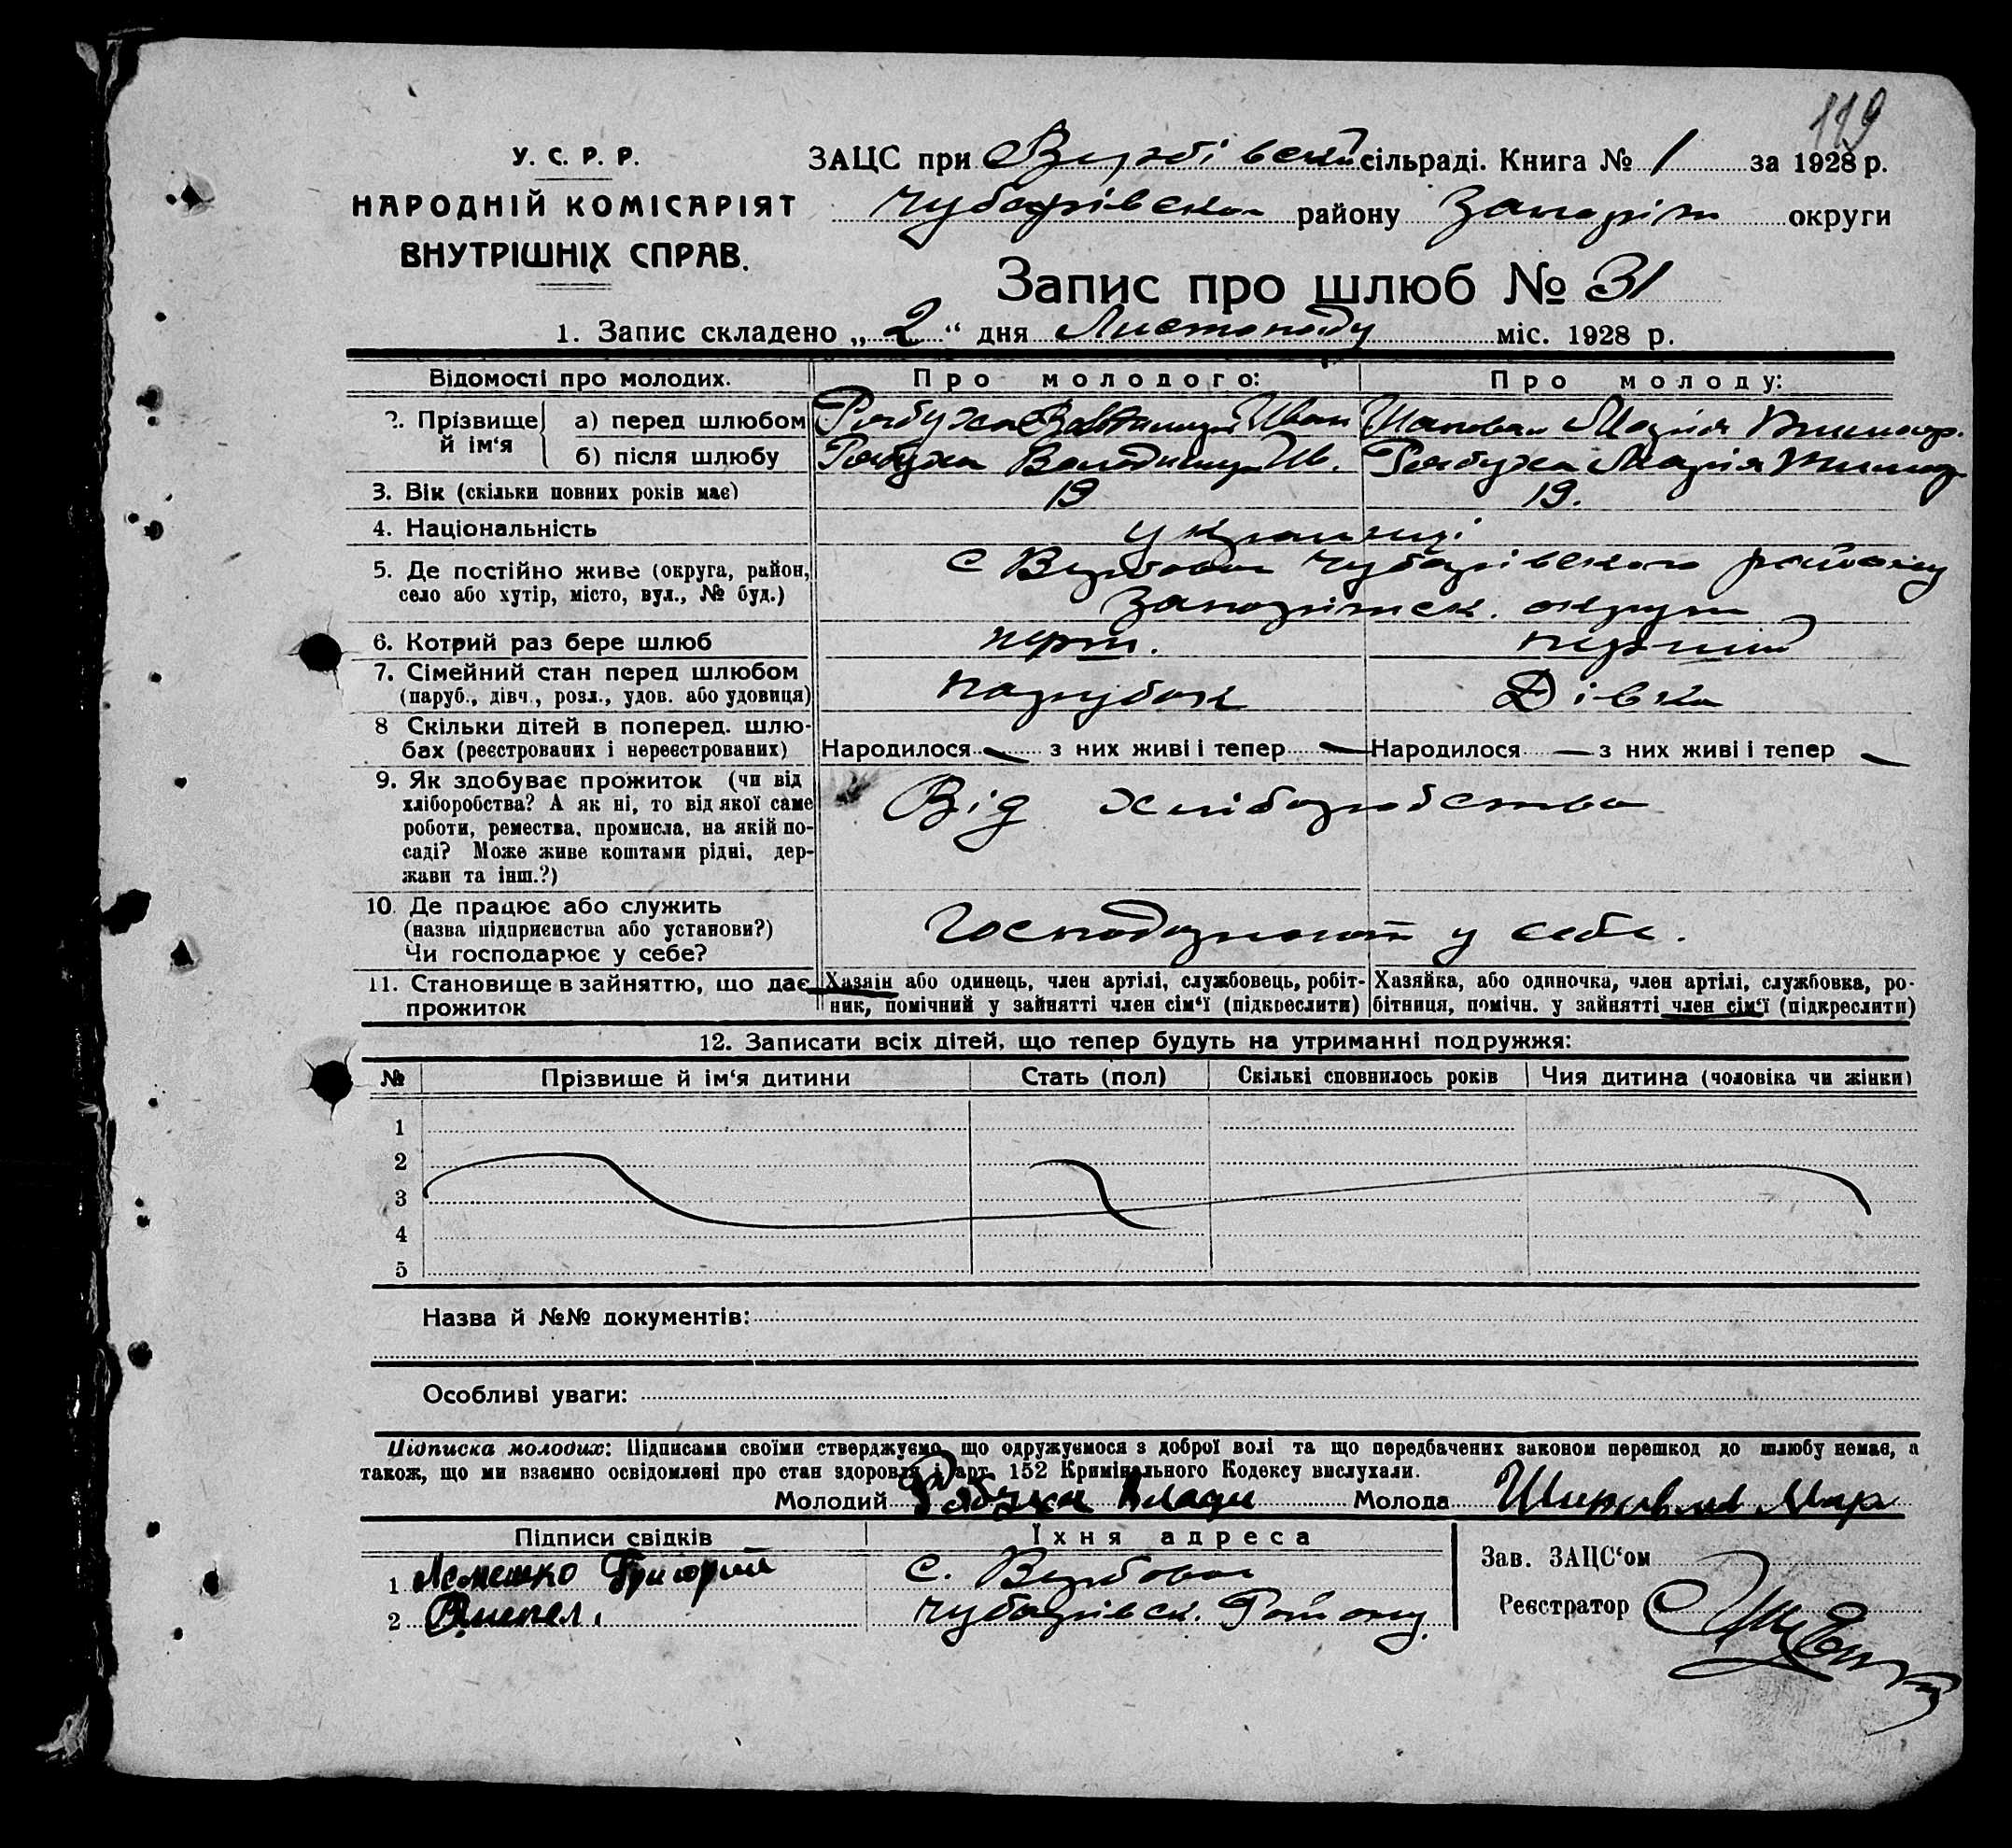 119
У. С. Р. Р.
НАРОДНІЙ КОМІСАРІЯТ
ВНУТРІШНІХ СПРАВ.
ЗАЦС при Вербівській сільраді. Книга № 1 за 1928 р.
Чубарівськ району Запоріж округи
Запис про шлюб № 31
1. Запис складено „ 2 “ дня Листопаду міс. 1928 р.
Відомості про молодих. Про молодого: Про молоду:
2. Прізвище й ім‘я
а) перед шлюбом Рябуха Іван Шаповал Марія Тимоф.
б) після шлюбу Рябуха Володимир Ів. Рябуха Марія Тимоф
3. Вік (скільки повних років має) 19 19.
4. Національність Українці
5. Де постійно живе (округа, район, с Вербова Чубарівського району
село або хутір, місто, вул., № буд.) Запоріжськ. округи
6. Котрий раз бере шлюб перш. перший
7. Сімейний стан перед шлюбом парубок Дівка
(паруб., дівч., розл., удов. або удовиця)
8 Скільки дітей в поперед. шлю-
бах (реєстрованих і нереєстрованих) Народилося — з них живі і тепер — Народилося — з них живі і тепер —
9. Як здобуває прожиток (чи від Від хліборобства
хліборобства? А як ні, то від якої саме
роботи, ремества, промисла, на якій по-
саді? Може живе коштами рідні, дер-
жави та інш.?)
10. Де працює або служить
(назва підприєиства або установи?) Господарюют у себе.
Чи господарює у себе?
11. Становище в зайняттю, що дає Хазяін або одинець, член артілі, службовець, робіт- Хазяйка, або одиночка, член артілі, службовка, ро-
прожиток ник, помічний у зайнятті член сім‘ї (підкреслити) бітниця, помічн. у зайнятті член сім‘ї (підкреслити)
12. Записати всіх дітей, що тепер будуть на утриманні подружжя:
№ Прізвише й ім‘я дитини Стать (пол) Скількі сповнилось років Чия дитина (чоловіка чи жінки)
1
2
3
4
5
Назва й №№ документів:
Особливі уваги:
Підписка молодих: Підписами своїми стверджуємо, що одружуємося з доброї волі та що передбачених законом перешкод до шлюбу немає, а
також, що ми взаємно освідомлені про стан здоровля і арт. 152 Кримінального Кодексу вислухали.
Молодий Рябуха Влади Молода Шаповал Мар
Підписи свідків Їхня адреса
Зав. ЗАЦС‘ом
1 Лемешко Григорий с. Вербова
2 Чубарівск. Району.
Реєстратор